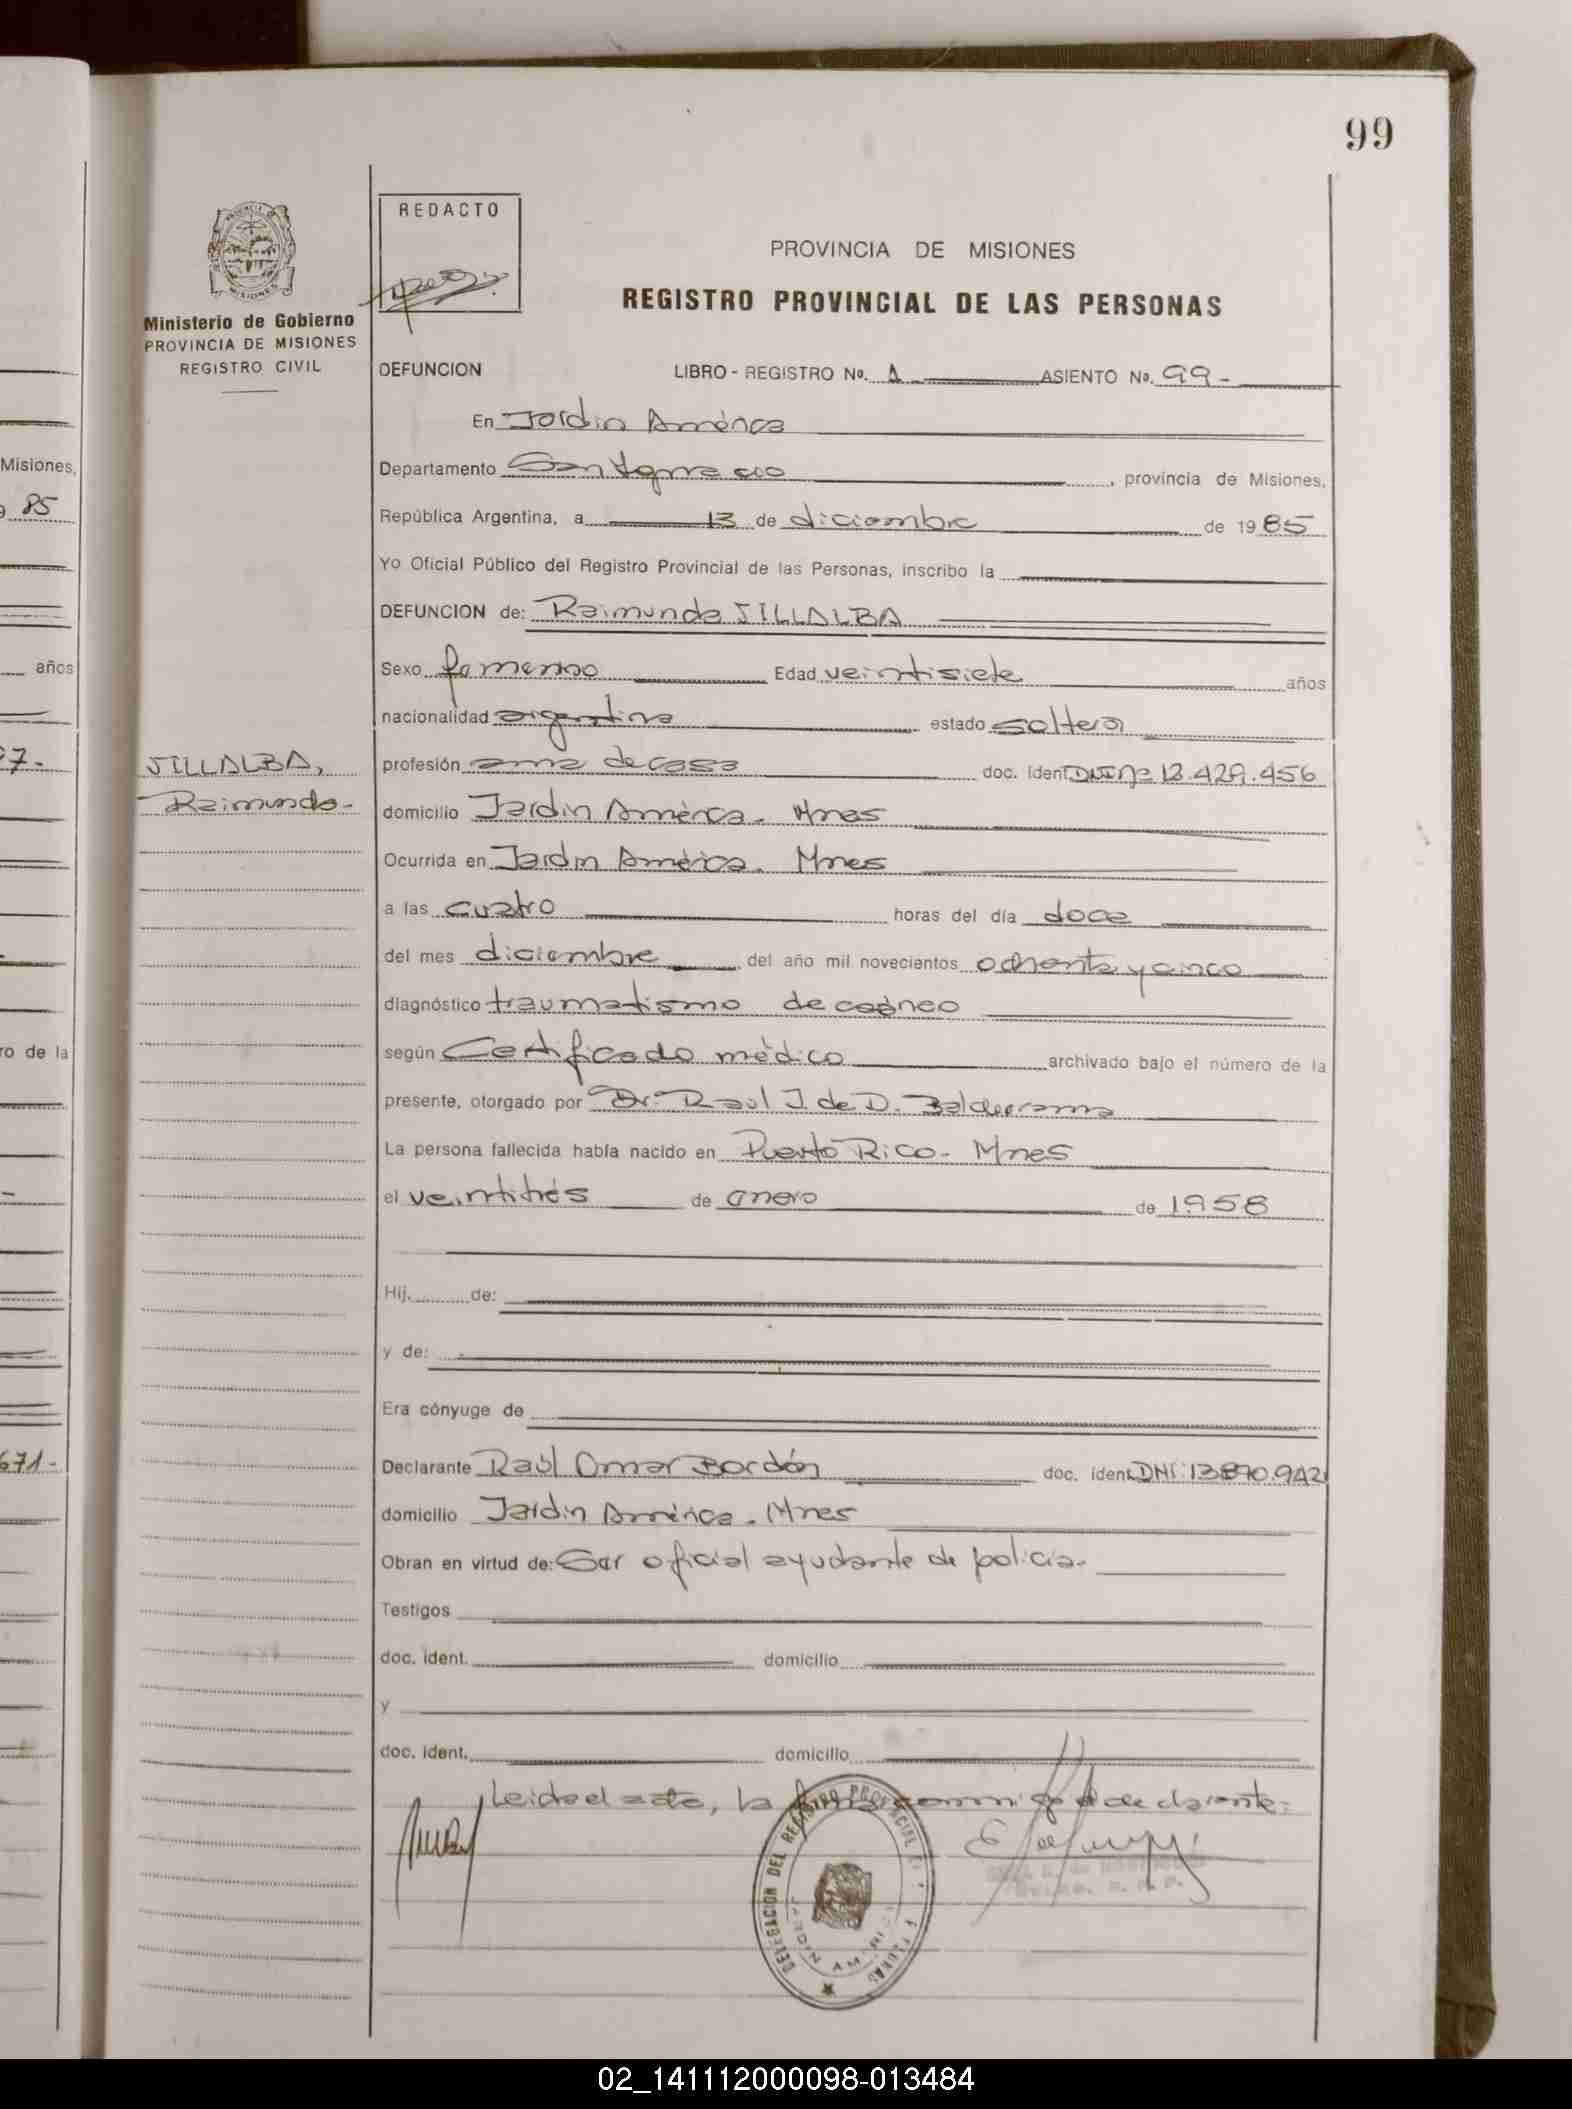 99
REDACTO
PROVINCIA DE MISIONES
REGISTRO PROVINCIAL DE LAS PERSONAS
Ministerio de Gobierno
PROVINCIA DE MISIONES
REGISTRO CIVIL
DEFUNCION LIBRO - REGISTRO No. 1 ASIENTO No. 99-
En Jardin América
Departamento San Ignacio, provincia de Misiones,
República Argentina, a 13 de diciembre de 1985
Yo Oficial Público del Registro Provincial de las Personas, inscribo la
DEFUNCION de: Raimunda VILLALBA
Sexo femenino Edad veintisiete años
nacionalidad argentina estado soltera
VILLALBA,
Raimunda-
profesión ama de casa doc. ident. DNI Nº 12.429.456
domicilio Jardin América. Mnes
Ocurrida en Jardin América. Mnes
a las cuatro horas del día doce
del mes diciembre del año mil novecientos ochenta y cinco
diagnóstico traumatismo de cráneo
según Certificado médico archivado bajo el número de la
presente, otorgado por Dr. Raul J. de D. Balderrama
La persona fallecida había nacido en Puerto Rico- Mnes
el veintitrés de enero de 1958
Hij. de:
y de:
Era cónyuge de
Declarante Raúl Omar Bordón doc. ident. DNI: 13.890.942
domicilio Jardin América. Mnes
Obran en virtud de: Ser oficial ayudante de policía.
Testigos
doc. ident. domicilio
y
doc. ident. domicilio
Leida el acta, la firma conmigo el declarante:
DELEGACION DEL REGISTRO PROVINCIAL
JARDIN AMERICA
Misiones,
85
años
97-
ro de la
671-
02_141112000098-013484